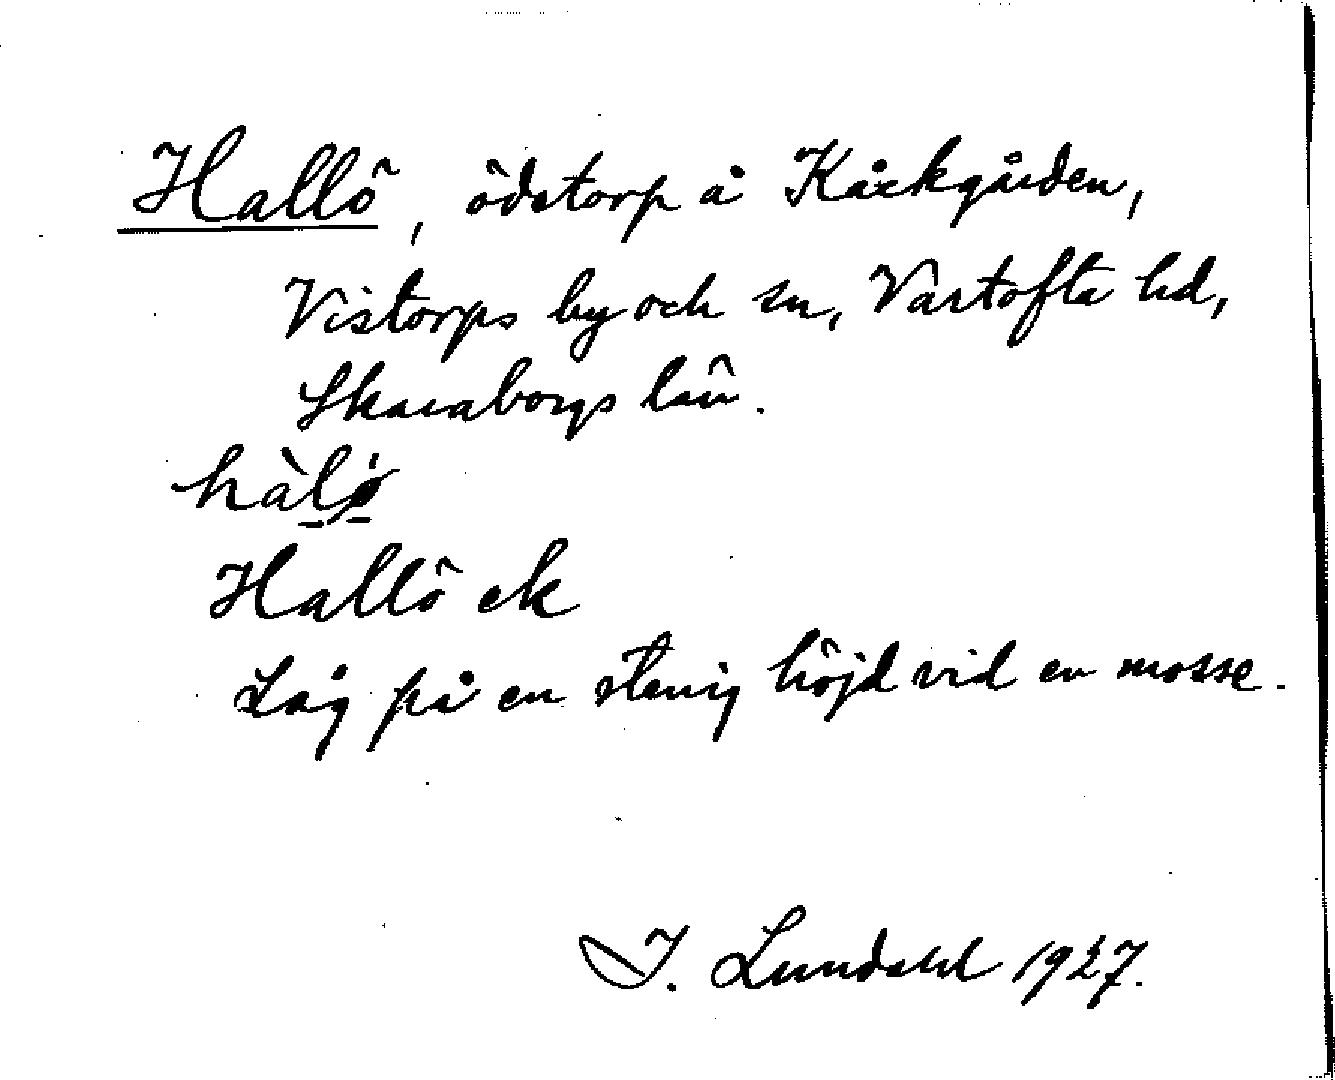 Hallö, ödetorp å Kåckgården,
Vistorps by och sn, Vartofta hd,
Skaraborgs län.
hàlø
Hallö ek
Låg på en stenig höjd vid en mosse.
I. Lundahl 1927.